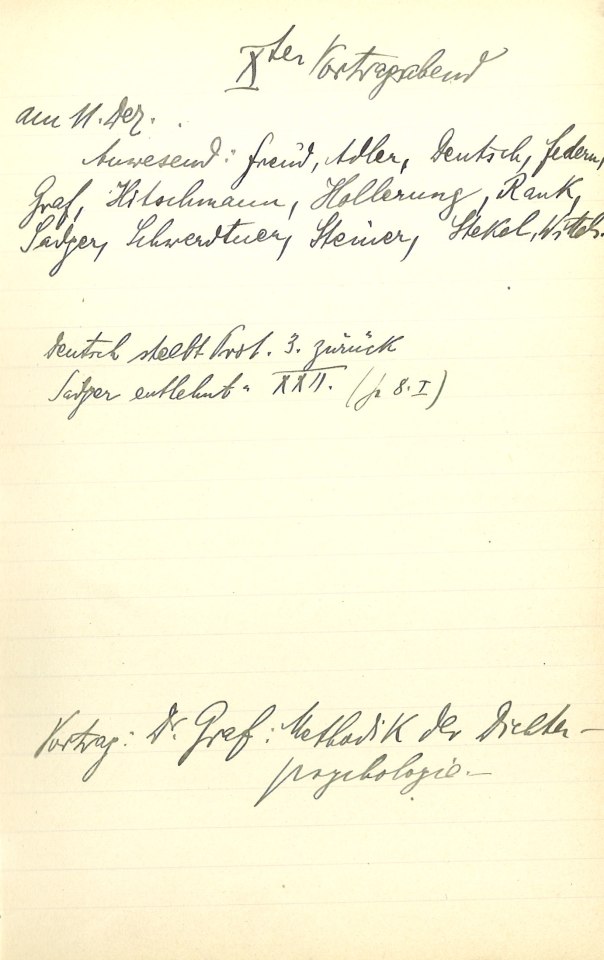 Xter Vortragsabend
am 11. Dez.
Anwesend: Freud, Adler, Deutsch, Federn,
Graf, Hitschmann, Hollerung, Rank,
Sadger, Schwerdtner, Steiner, Stekel, Wittels.
Deutsch stellt Prot. 3. zurück
Sadger entlehnt " XXII. 8. I)
Vortrag: Dr Graf: Methodik der Dichter-
psychologie.—